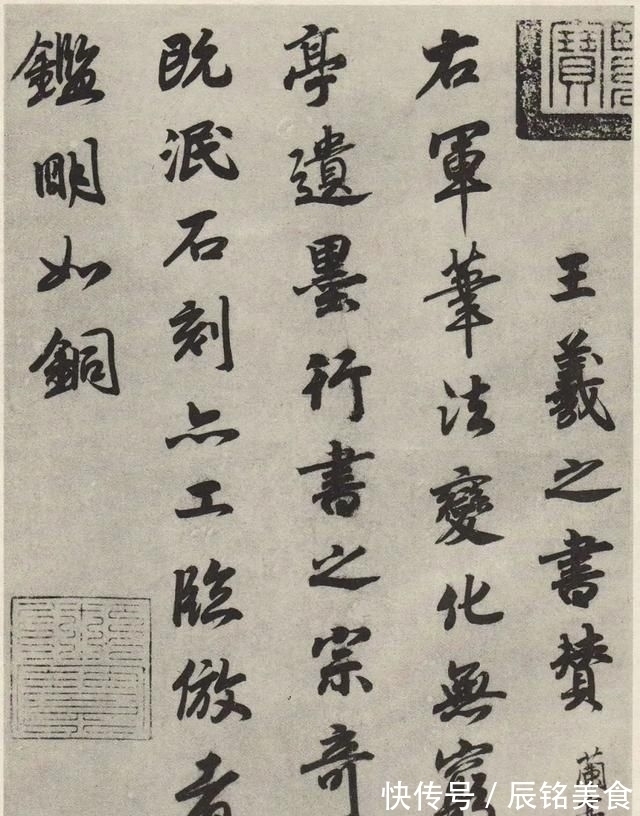 王羲之書贊 蘭
右軍筆法變化無窮
亭遺墨行書之宗奇
既泯石刻亦工臨倣者
鑑明如銅
寶
快传号／辰铭美食